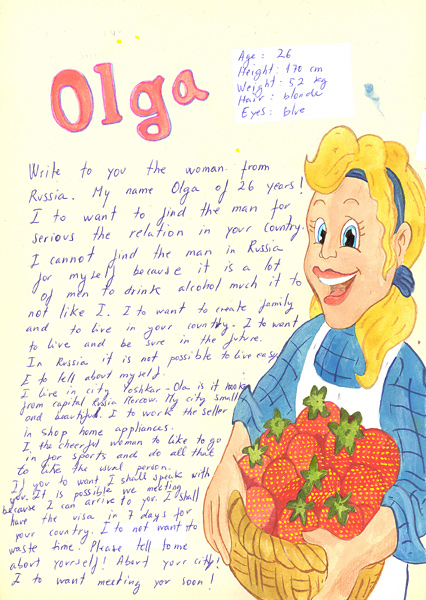 Olga
Age: 26
Height: 170 cm
Weight: 52 kg
Hair: blonde
Eyes: blue
Write to you the woman from
Russia. My name Olga of 26 years!
I to want to find the man for
serious the relation in your country.
I cannot find the man in Russia
for myself because it is a lot
of men to drink alcohol much it to
not like I. I to want to create family
and to live in your country. I to want
to live and be sure in the future.
In Russia it is not possible to live easy.
I to tell about myself.
I live in city Yoshkar-Ola is it
from capital Russia Moscow. My city small
and beautiful. I to work the seller
in shop home appliances.
I the cheerful woman to like to go
in for sports and do all that
to like the usual person.
If you to want I shall speak with
you. It is possible we meeting
because I can arrive to you. I shall
have the visa in 7 days for
your country. I to not want to
waste time. Please tell to me
about yourself! About your city!
I to want meeting yor soon!